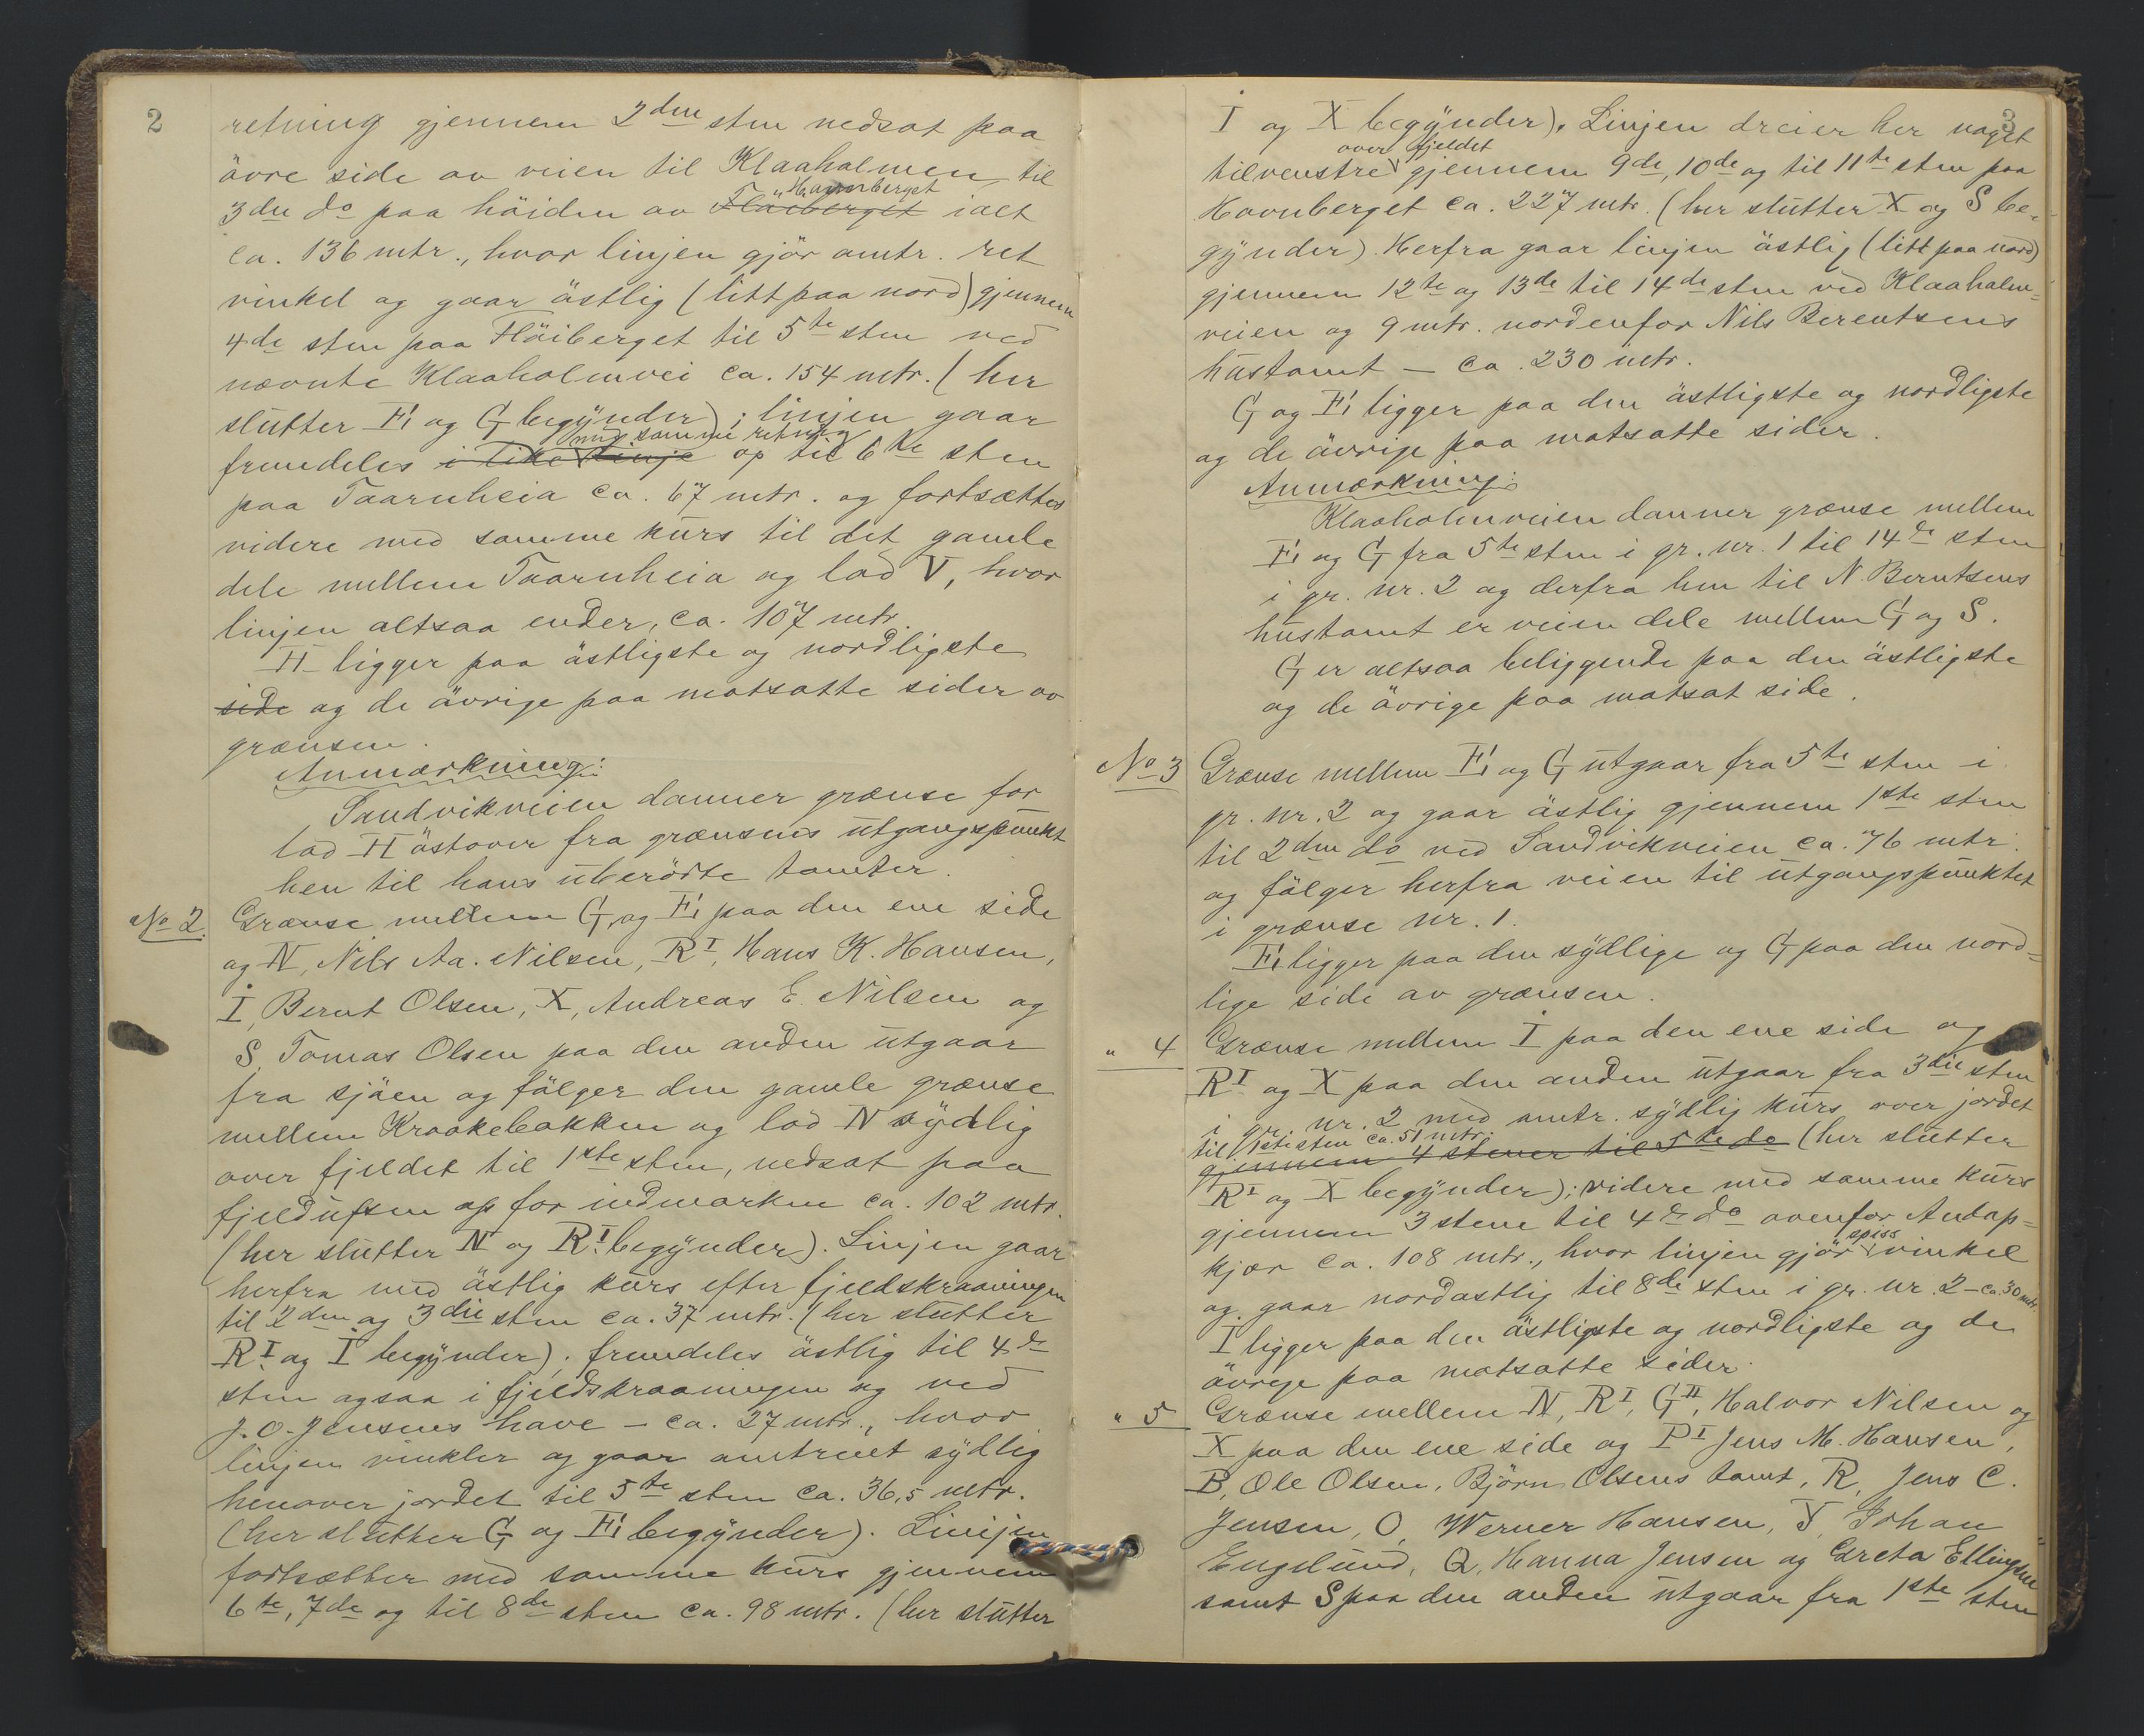 2
retning gjennem 2den sten nedsat paa
övre side av veien til Klaaholmen til
Havnberget
3die do paa höiden av Flöiberget ialt
ca. 136 mtr., hvor linjen gjör omtr. ret
vinkel og gaar östlig (litt paa nord) gjennem
4de sten paa Flöiberget til 5te sten ved
nævnte Klaaholmvei ca. 154 mtr. (her
slutter F1 og G begynder); linjen gaar
med samme retning
fremdeles i like linje op til 6te sten
paa Taarnheia ca. 67 mtr. og fortsættes
videre med samme kurs til det gamle
dele mellem Taarnheia og lod V, hvor
linjen altsaa ender, ca. 107 mtr.
H ligger paa östligste og nordligste
side og de övrige paa motsatte sider av
grænsen.
Anmærkning:
Sandvikveien danner grænse for
lod H östover fra grænsens utgangspunkt
hen til hans uberörte tomter.
No 2. Grænse mellem G og F1 paa den ene side
og N, Nils Aa. Nilsen, RI, Hans K. Hansen,
I, Bernt Olsen, X, Andreas E. Nilsen og
S, Tomas Olsen paa den anden utgaar
fra sjöen og fölger den gamle grænse
mellem Kraakebakken og lod N sydlig
over fjeldet til 1ste sten, nedsat paa
fjeldufsen op for indmarken ca. 102 mtr.
(her slutter N og RI begynder). Linjen gaar
herfra med östlig kurs efter fjeldskraaningen
til 2den og 3die sten ca. 37 mtr. (her slutter
RI og I begynder). fremdeles östlig til 4de
sten ogsaa i fjeldskraaningen og ved
J. O. Jensens have – ca. 27 mtr., hvor
linjen vinkler og gaar omtrent sydlig
henover jordet til 5te sten ca. 36,5 mtr.
(her slutter G og F1 begynder). Linjen
fortsætter med samme kurs gjennem
6te, 7de og til 8de sten ca. 98 mtr. (her slutter
3
I og X begynder). Linjen dreier her noget
over fjeldet
tilvenstre gjennem 9de, 10de og til 11te sten paa
Havnberget ca. 227 mtr. (her slutter X og S be-
gynder). Herfra gaar linjen östlig (litt paa nord)
gjennem 12te og 13de til 14de sten ved Klaaholm=
veien og 9 mtr. nordenfor Nils Berentsens
hustomt – ca. 230 mtr.
G og F1 ligger paa den östligste og nordligste
og de övrige paa motsatte sider.
Anmærkning:
Klaaholmveien danner grænse mellem
F1 og G fra 5te sten i gr. nr. 1 til 14de sten
i gr. nr. 2 og derfra hen til N. Berntsens
hustomt er veien dele mellem G og S.
G er altsaa beliggende paa den östligste
og de övrige paa motsat side.
No 3 Grænse mellem F1 og G utgaar fra 5te sten i
gr. nr. 2 og gaar östlig gjennem 1ste sten
til 2den do ved Sandvikveien ca. 76 mtr.
og fölger herfra veien til utgangspunktet
i grænse nr. 1.
F1 ligger paa den sydlige og G paa den nord=
lige side av grænsen.
" 4 Grænse mellem I paa den ene side og
RI og X paa den anden utgaar fra 3die sten
i gr. nr. 2 med omtr. sydlig kurs over jordet
til 1ste sten ca. 51 mtr.
gjennem 4 stener til 5te do (her slutter
RI og X begynder); videre med samme kurs
gjennem 3 stene til 4de do ovenfor Andap=
spiss
kjær ca. 108 mtr., hvor linjen gjör vinkel
og gaar nordostlig til 8de sten i gr. nr. 2 – ca. 30 mtr.
I ligger paa den östligste og nordligste og de
övrige paa motsatte sider.
" 5 Grænse mellem N, RI, GII, Halvor Nilsen og
X paa den ene side og PI Jens M. Hansen,
B, Ole Olsen, Björn Olsens tomt, R, Jens C.
Jensen, O, Werner Hansen, T, Johan
Englund, Q, Hanna Jensen og Greta Ellingsen
samt S paa den anden utgaar fra 1ste sten